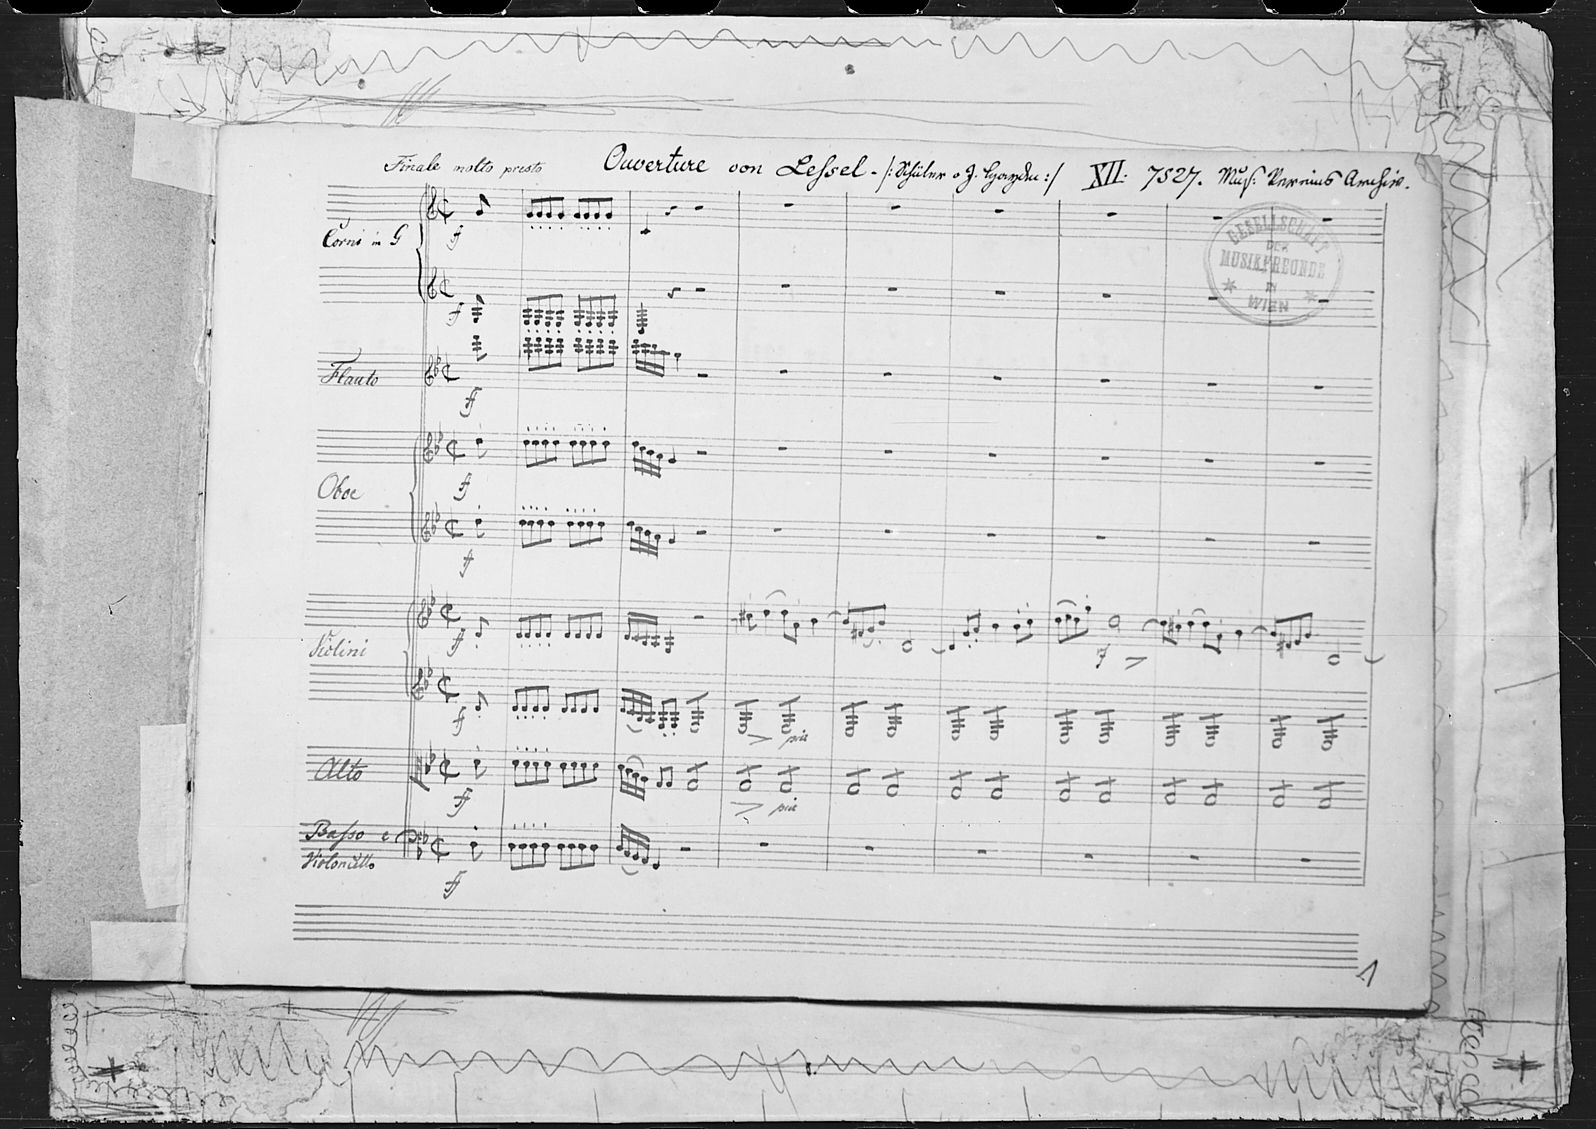 Finale molto presto Ouverture von Lessel - /: Schüler v. J. Haydn :/ XII. 7527. Mus: Vereins Archiv.
Corni in G
f
f
GESELLSCHAFT
DER
MUSIKFREUNDE
IN
WIEN
Flauto
f
f
Oboe
f
Violini
f
f
f
pia
Alto
f
pia
Basso e
Violoncello
f
1